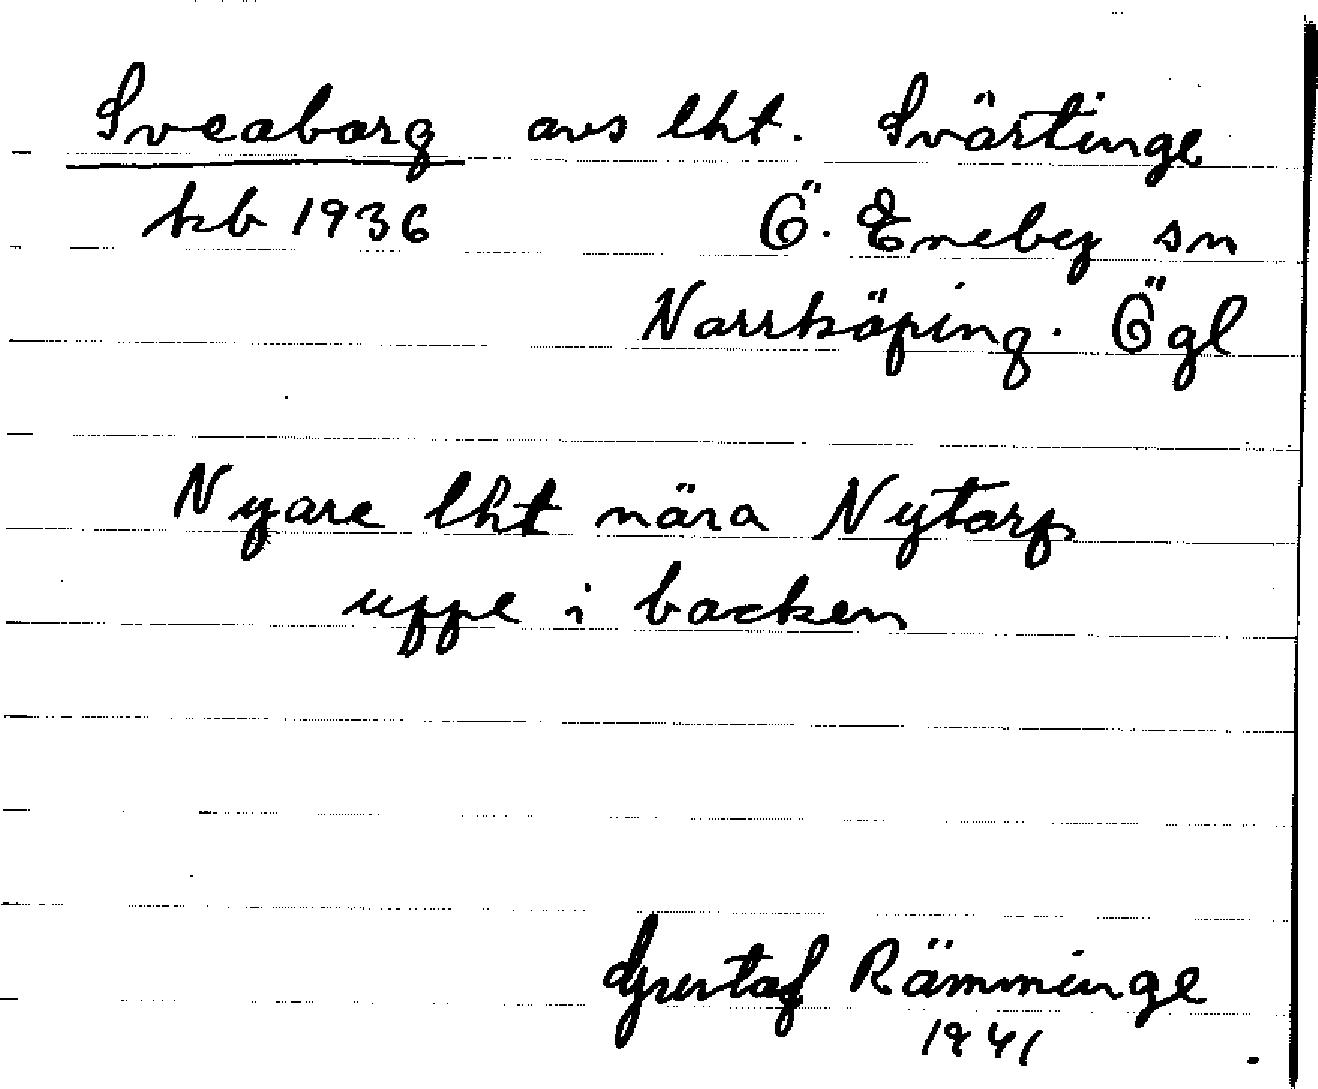 Sveaborg avs lht. Svärtinge
kb 1936 Ö. Eneby sn
Norrköping. Ögl
Nyare lht nära Nytorp
uppe i backen
Gustaf Rämminge
1941